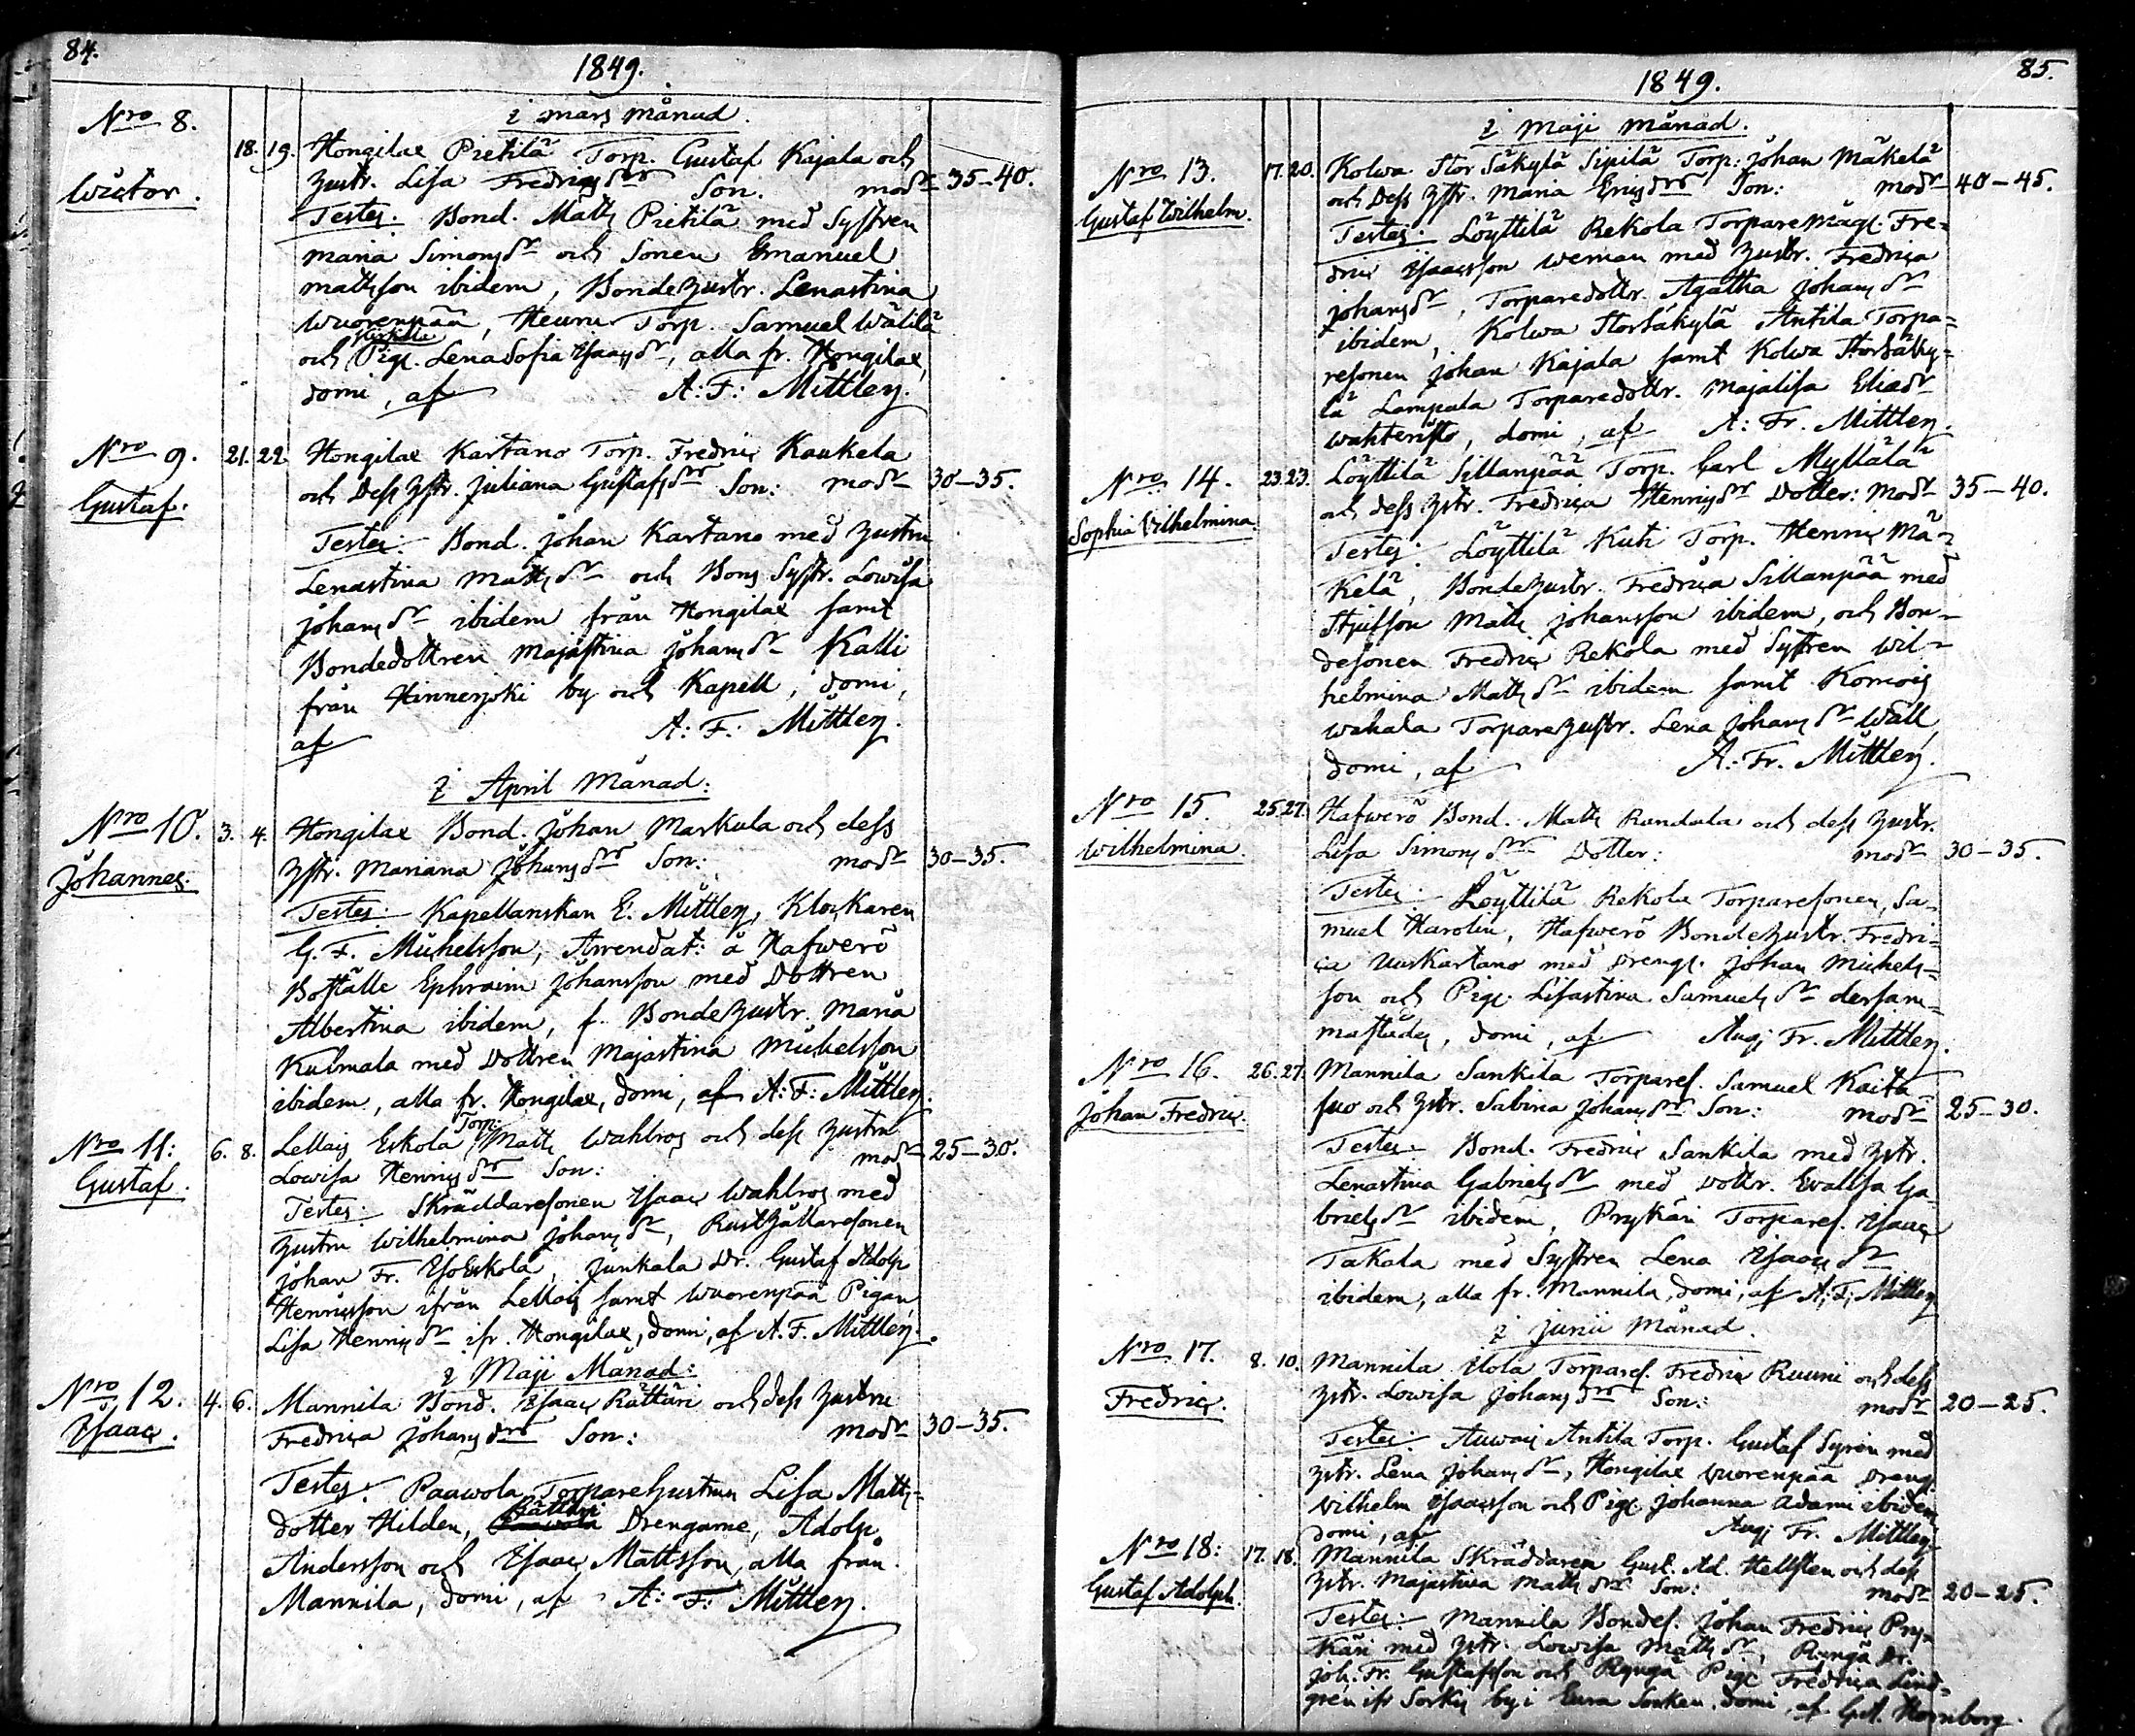 84.
1849.
i mars månad.
Nro 8.
18. 19. Hongilax Pietilä Torp. Gustaf Kajala och
Wictor.
hustr. Lisa Fredrics dr Son. modr 35-40.
Testes: Bond. Matts Pietilä med Systren
Maria Simonsdr och Sonen Emanuel
Mattsson ibidem, Bondehustr. Lenastina
Wuorenpää, Heuru Torp. Samuel Wälilä
och Pig. Lenasofia Isaacsdr, alla fr. Hongilax,
domi, af A: F: Mittler.
Nro 9.
21. 22. Hongilax Kartano Torp. Fredric Kaukela
Gustaf.
och Dess Hstr. Juliana Gustafsdr Son: modr 30-35.
Testes: Bond. Johan Kartano med hustru
Lenastina Mattsdr och Bons Systr. Lowisa
Johansdr ibidem från Hongilax samt
Bondedottren Majastina Johansdr Kalli
från Hinnerjoki by och Kapell, domi,
af A: F: Mittler.
i April Månad:
Nro 10.
3. 4. Hongilax Bond. Johan Markula och dess
Johannes.
Hstr. Mariana Johansdr Son: modr 30-35.
Testes: Kapellanskan E. Mittler, Klockaren
G. F. Michelsson, Arrendat: å Hafwerö
Boställe Ephraim Johansson med Dottren
Albertina ibidem, f. Bondehustr. Maria
Kulmala med Dottren Majastina Michelsson
ibidem, alla fr. Hongilax, domi, af A: F: Mittler.
Nro 11:
Torp.
6. 8. Lellais Eskola Matts Wahlros och dess hustru
Gustaf.
Lowisa Henricsdr Son: modr 25-30.
Testes: Skräddaresonen Isaac Wahlros med
hustru Wilhelmina Johansdr, Rusthållaresonen
Johan Fr. Iso Eskola, Junkala Dr. Gustaf Adolp
Henricsson ifrån Lellais samt Wuorenpää Pigan
Lisa Henricsdr ifr. Hongilax, domi, af A. F. Mittler.
i Maji Månad:
Nro 12.
4. 6. Mannila Bond. Isaac Rättäri och dess hustru
Isaac.
Fredrica Johansdr Son: modr 30-35.
Testes: Paawola Torparehustrun Lisa Matts-
Rättäri
dotter Hilden, Drengarne, Adolp
Andersson och Isaac Mattsson, alla från
Mannila, domi, af A: F: Mittler.
85.
1849.
i Maji månad.
Nro 13.
17. 20. Kolwa StorSäkylä Sipilä Torp: Johan Mäkelä
Gustaf Wilhelm.
och Dess Hstr. Maria Ericsdr Son: modr 40-45.
Testes: Löyttilä Rekola Torparemåg. Fre-
dric Isaacsson Weman med hustr. Fredrica
Johansdr, Torparedottr. Agatha Johansdr
ibidem, Kolwa StorSäkylä Anttila Torpa-
resonen Johan Kajala samt Kolwa StorSäky-
lä Lampala Torparedottr. Majalisa Eliædr
Wahteristo, domi, af A: Fr. Mittler.
Nro 14.
23. 23. Löyttilä Sillanpää Torp. Carl Myllälä
Sophia Vilhelmina
och dess Hstr. Fredrica Henricsdr Dotter: Modr 35-40.
Testes: Löyttilä Kuti Torp. Henric Mä-
kelä, Bondehustr. Fredrica Sillanpää med
Stjufson Matts Johansson ibidem, och Bon-
desonen Fredric Rekola med Systren Wil-
helmina Mattsdr ibidem samt Korwois
Wahala Torparehustr. Lena Johansdr Wäll
domi, af A: Fr. Mittler.
Nro 15.
25. 27. Hafwerö Bond. Matts Randala och dess hustr.
Wilhelmina.
Lisa Simonsdr Dotter: modr 30-35.
Testes: Löyttilä Rekola Torparesonen, Sa-
muel Karolin, Hafwerö Bondehustr. Fredri-
ca Uuskartano med Dreng. Johan Michels-
son och Pig. Lisastina Samuelsdr dersam-
mastädes, domi, af Aug. Fr. Mittler.
Nro 16.
26. 27. Mannila Sankila Torpares. Samuel Kaita
Johan Fredric.
suo och Hstr. Sabina Johansdr Son: modr 25-30.
Testes: Bond. Fredric Sankila med Hstr.
Lenastina Gabrielsdr med Dottr. Evalisa Ga-
brielsdr ibidem, Prykäri Torpares. Isaac
Takala med Systren Lena Isaacsdr
ibidem, alla fr. Mannila, domi, af A: F: Mittler
i Junii Månad.
Nro 17.
8. 10. Mannila Ilola Torpares. Fredric Ruuni och dess
Fredric.
Hstr. Lowisa Johansdr Son: modr 20-25.
Testes: Auwais Anttila Torp. Gustaf Syrén med
Hstr. Lena Johansdr, Hongilax Wuorenpää Dreng.
Wilhelm Isaacsson och Pig. Johanna Adami ibidem
domi, af Aug. Fr. Mittler
Nro 18:
17. 18. Mannila Skräddaren Gust. Ad. Hellsten och dess
Gustaf Adolph.
Hstr. Majastina Mattsdr Son: modr 20-25.
Testes: Mannila Bondes. Johan Fredric Pry-
käri med Hstr. Lowisa Mattsdr, Ryngä Dr.
Joh. Fr. Gustafsson och Ryngä Pig. Fredrica Lind-
gren ifr Sorkis by i Eura Socken, domi, af G. A. Hornborg.